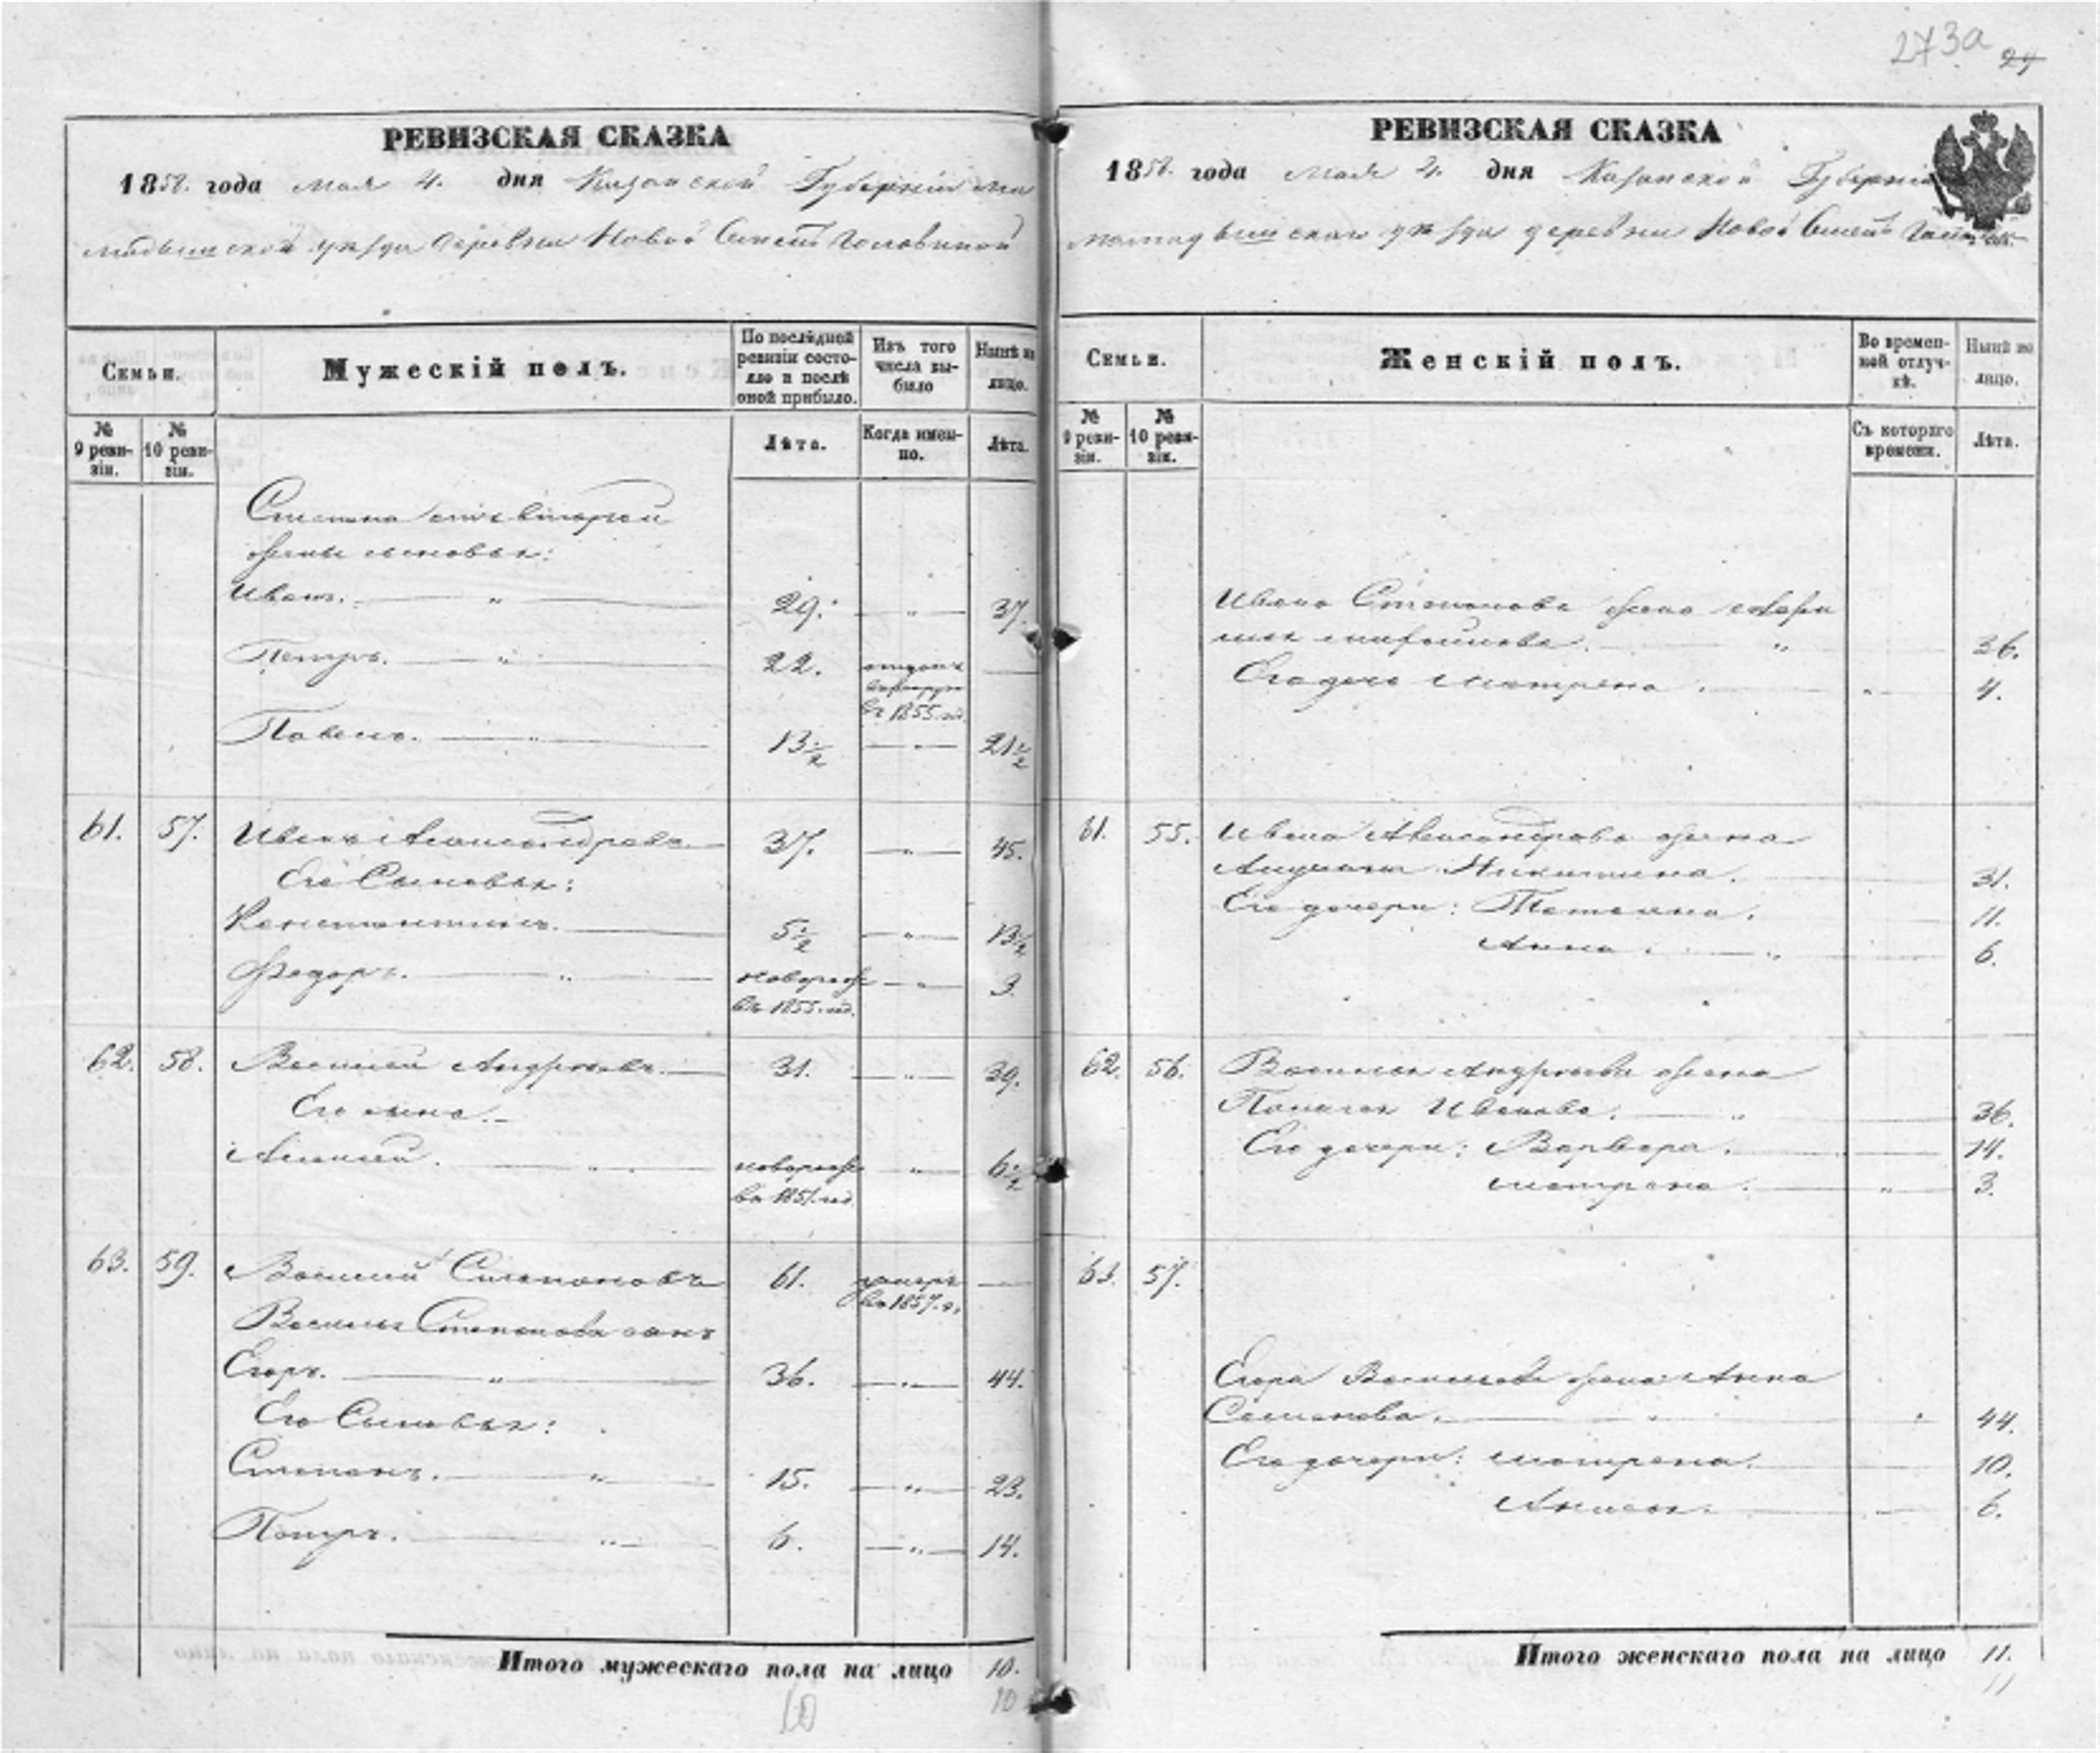 273а 27
РЕВИЗСКАЯ СКАЗКА
1858. года мая 4. дня Казанской Губерніи Ма
мадышской уѣзда деревни Новой
Семьи.
Мужескій полъ.
По послѣдней ревизіи состояло и послѣ оной прибыло.
Изъ того числа выбыло
Нынѣ на лицо.
№ 9 ревизіи.
№ 10 ревизіи.
Лѣта.
Когда именно.
Лѣта.
Степана отъ второй
жены сыновья:
Иванъ. 29. 37.
Петръ. 22. отданъ
въ рекруты
въ 1855 год.
Павелъ. 13½ 21½
61. 57. Иванъ Александровъ 37. 45.
Его Сыновья:
Константинъ. 5½ 13½
Федоръ. новорож 3.
въ 1855 год.
62. 58. Василій Андреевъ 31. 39.
Его сынъ.
Алексей. новорож 6½
въ 1851 год
63. 59. Василій Степановъ 61. умеръ
въ 1857. г.
Василья Степанова сынъ
Егоръ. 36. 44.
Его Сыновья:
Степанъ. 15. 23.
Петръ. 6. 14.
Итого мужескаго пола на лицо 10.
10 10
РЕВИЗСКАЯ СКАЗКА
1858. года мая 4. дня Казанской Губерніи
мамадышской уѣзда деревни Новой
Семьи.
Женскій полъ.
Во временной отлучкѣ.
Нынѣ на лицо.
№ 9 ревизіи.
№ 10 ревизіи.
Съ котораго времени.
Лѣта.
Ивана Степанова жена
36.
Его дочь Матрена. 4.
61. 55. Ивана Александрова жена
Никитина. 31.
Его дочери: Татьяна. 11.
Анна. 6.
62. 56. Василья Андреева жена
Иванова. 36.
Его дочери: Варвара. 14.
Матрена. 3.
63. 57.
Егора Васильева жена Анна
Семенова. 44.
Его дочери: Матрена. 10.
6.
Итого женскаго пола на лицо 11.
11